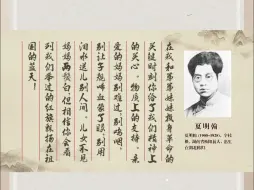 在我和弟弟妹妹投身革命的
关键时刻你给了我们精神上
的关心，物质上的支持。亲
爱的妈妈，别难过，别呜咽，
别让子规啼血蒙了眼，别用
泪水送儿别人间。儿女不见
妈妈两鬓白，但相信你会看
到我们举过的红旗飘扬在祖
国的蓝天！
夏明翰
夏明翰(1900-1928)，字桂
根，湖南省衡阳县人，出生